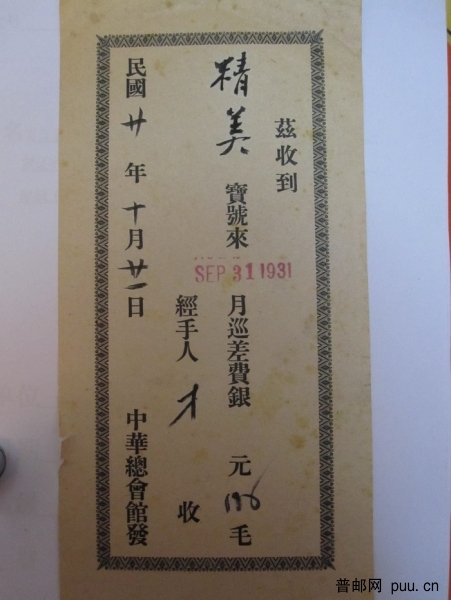 茲收到
精美 寶號來 SEP 31 1931 月巡差費銀 元 毛
經手人 才 收
民國廿年十月廿一日 中華總會館發
普邮网 puu.cn